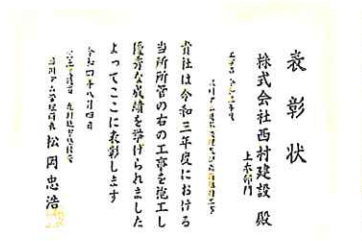 表彰状
土木部門
株式会社西村建設 殿
貴社は令和三年度における
当所所管の右の工事を施工し
優秀な成績を挙げられました
よってここに表彰します
令和四年八月四日
松岡忠浩